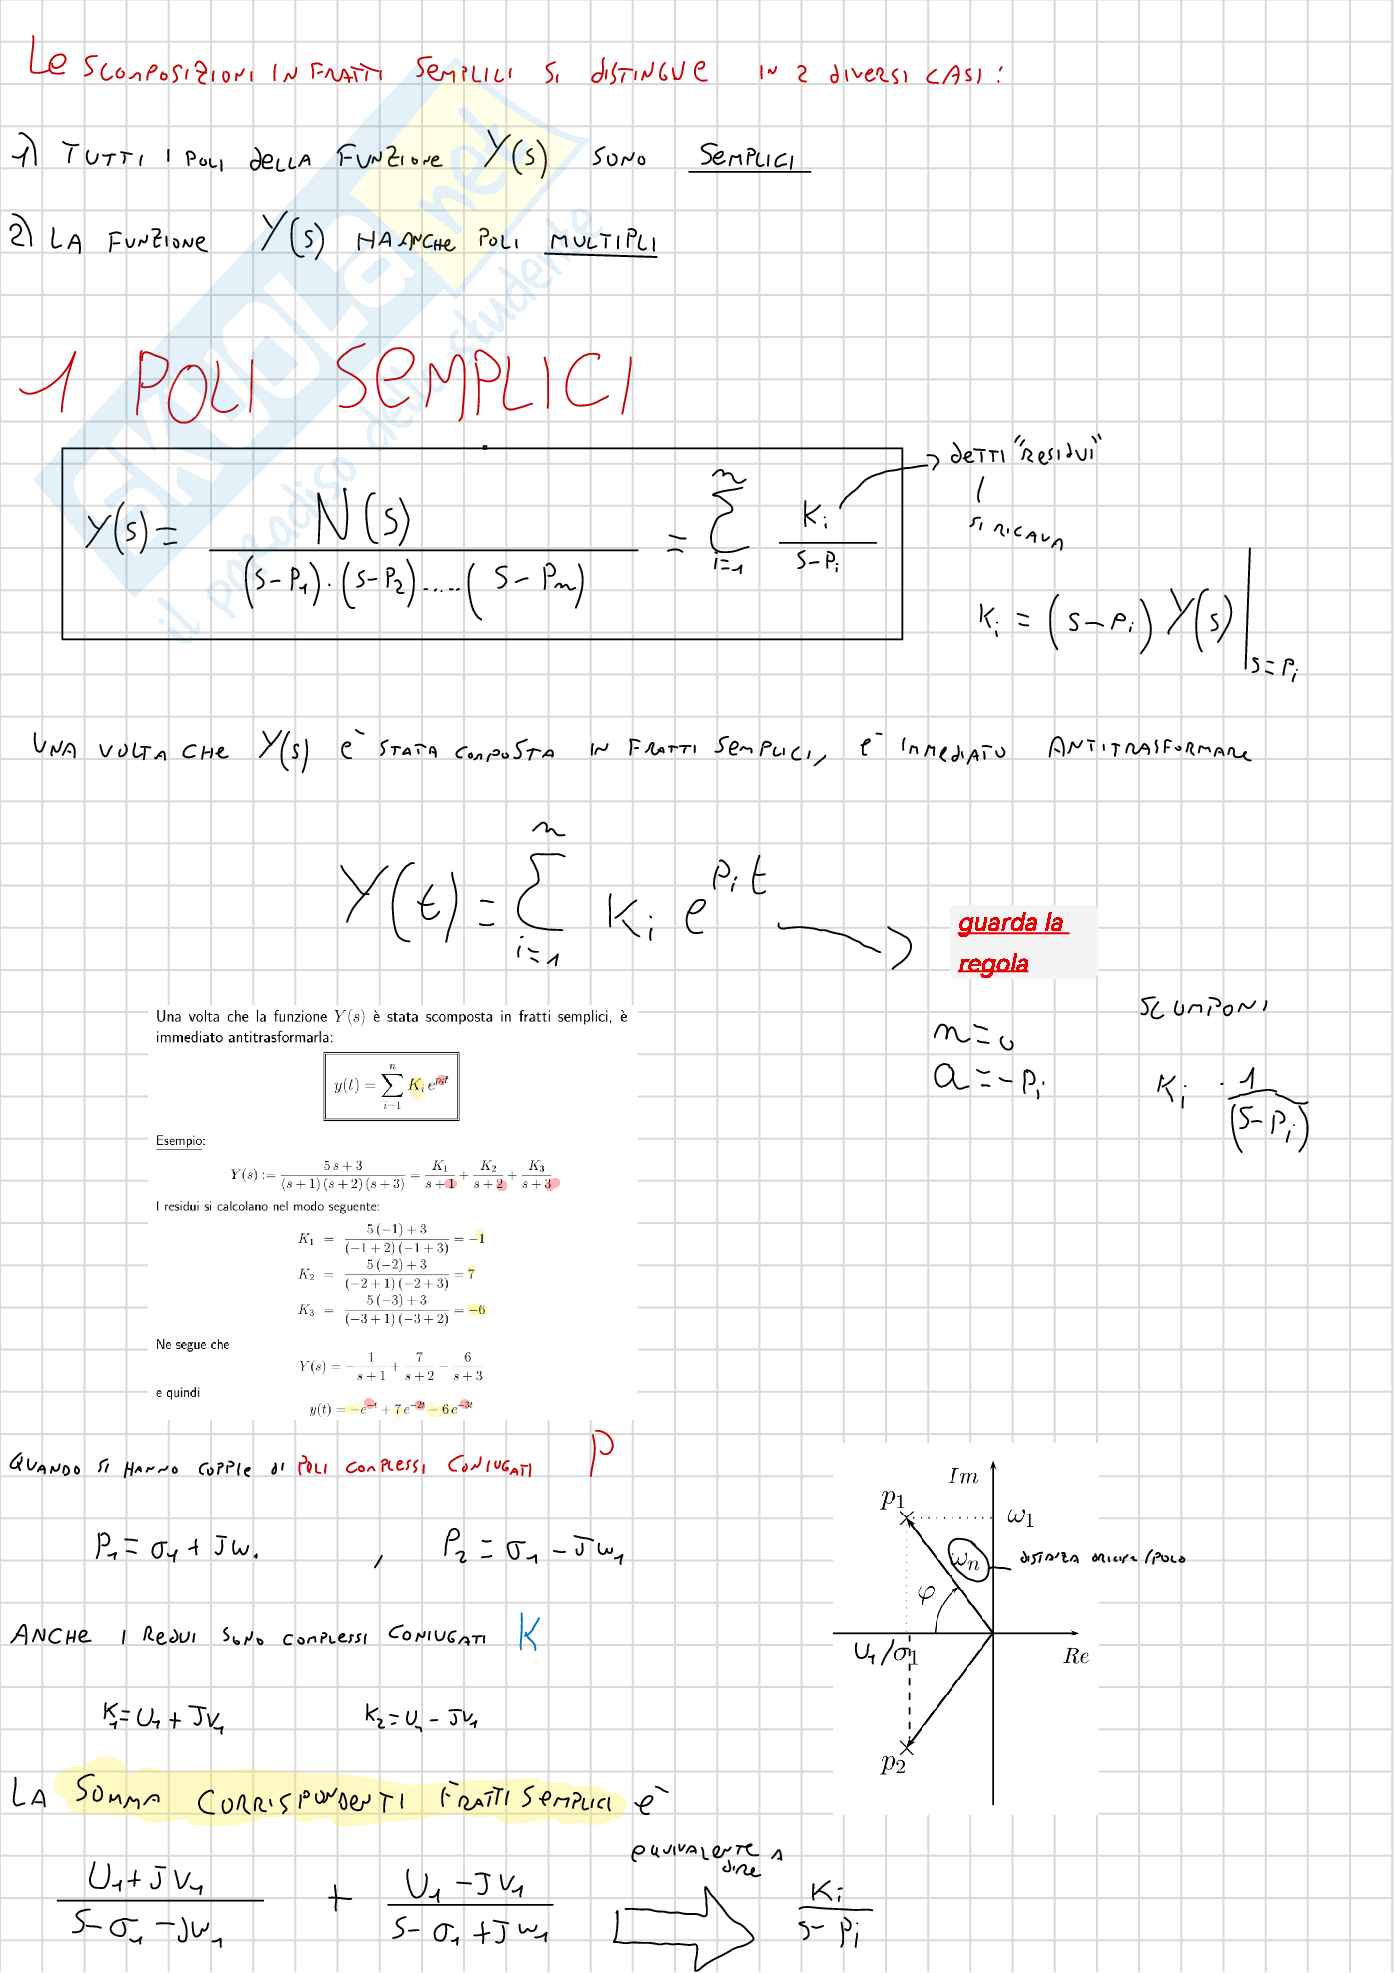 Le SCOMPOSIZIONI IN FRATTI SEMPLICI SI DISTINGUE IN 2 DIVERSI CASI:
1) TUTTI I POLI DELLA FUNZIONE Y(s) SONO SEMPLICI
2) LA FUNZIONE Y(s) HA ANCHE POLI MULTIPLI
1 POLI SEMPLICI
Y(s) = N(s) / (s-P₁)·(s-P₂).....(s-Pₙ) = Σᵢ₌₁ⁿ Kᵢ / s-Pᵢ
DETTI "RESIDUI"
SI RICAVA
Kᵢ = (s-Pᵢ) Y(s) |s=Pᵢ
UNA VOLTA CHE Y(s) è STATA COMPOSTA IN FRATTI SEMPLICI, è IMMEDIATO ANTITRASFORMARE
Y(t) = Σᵢ₌₁ⁿ Kᵢ e^Pᵢt
guarda la
regola
SCOMPONI
n=0
a=-Pᵢ
Kᵢ · 1 / (s-Pᵢ)
Una volta che la funzione Y(s) è stata scomposta in fratti semplici, è
immediato antitrasformarla:
y(t) = Σᵢ₌₁ⁿ Kᵢ e^pᵢt
Esempio:
Y(s) := 5 s + 3 / (s+1)(s+2)(s+3) = K₁ / s+1 + K₂ / s+2 + K₃ / s+3
I residui si calcolano nel modo seguente:
K₁ = 5(−1)+3 / (−1+2)(−1+3) = −1
K₂ = 5(−2)+3 / (−2+1)(−2+3) = 7
K₃ = 5(−3)+3 / (−3+1)(−3+2) = −6
Ne segue che
Y(s) = − 1 / s+1 + 7 / s+2 − 6 / s+3
e quindi
y(t) = −e^−t + 7 e^−2t − 6 e^−3t
QUANDO SI HANNO COPPIE DI POLI COMPLESSI CONIUGATI P
P₁ = σ₁ + Jω. , P₂ = σ₁ − Jω₁
ANCHE I REDUI SONO COMPLESSI CONIUGATI K
K₁=U₁+JV₁ K₂=U₁−JV₁
Im
p₁
ω₁
ωn
DISTANZA ORIGINE/POLO
φ
U₁/σ1
Re
p₂
LA SOMMA CORRISPONDENTI FRATTI SEMPLICI è
EQUIVALENTE A
DIRE
U₁+JV₁ / S−σ₁−Jω₁ + U₁−JV₁ / S−σ₁+Jω₁ Kᵢ / s−Pᵢ
SKUOLA.net
il paradiso dello studente